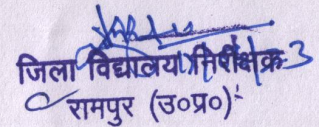 जिला विद्यालय निरीक्षक
रामपुर (उ०प्र०)